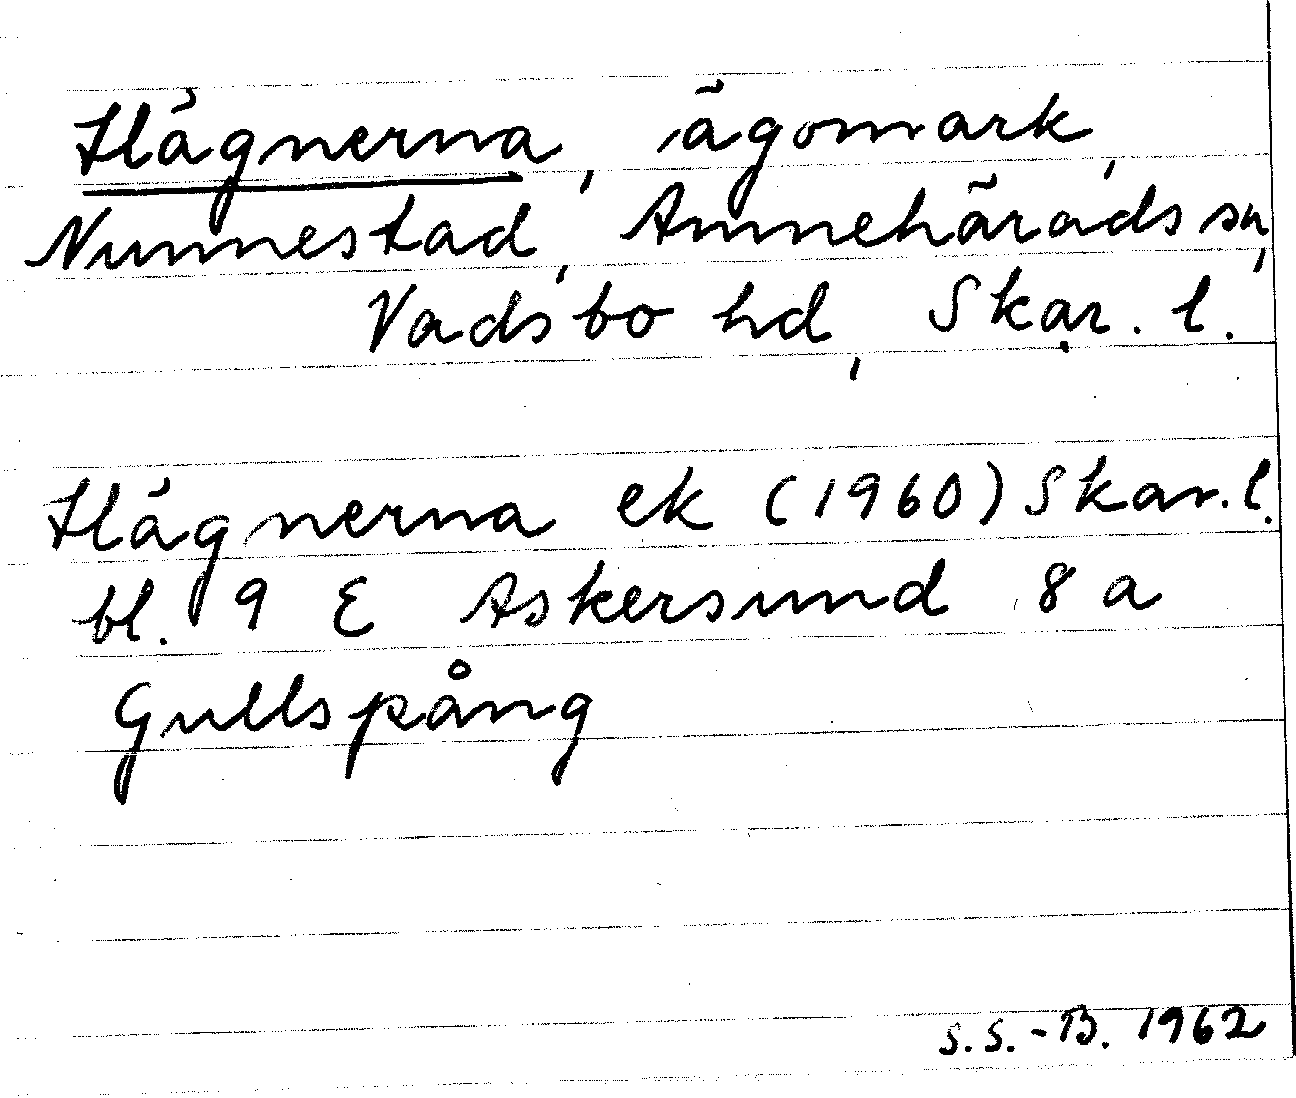 Hägnerna, ägomark,
Nunnestad, Amnehärads sn,
Vadsbo hd, Skar. l.
Hägnerna ek (1960) Skar. l.
bl. 9 E Askersund 8 a
Gullspång
S.S.-B. 1962